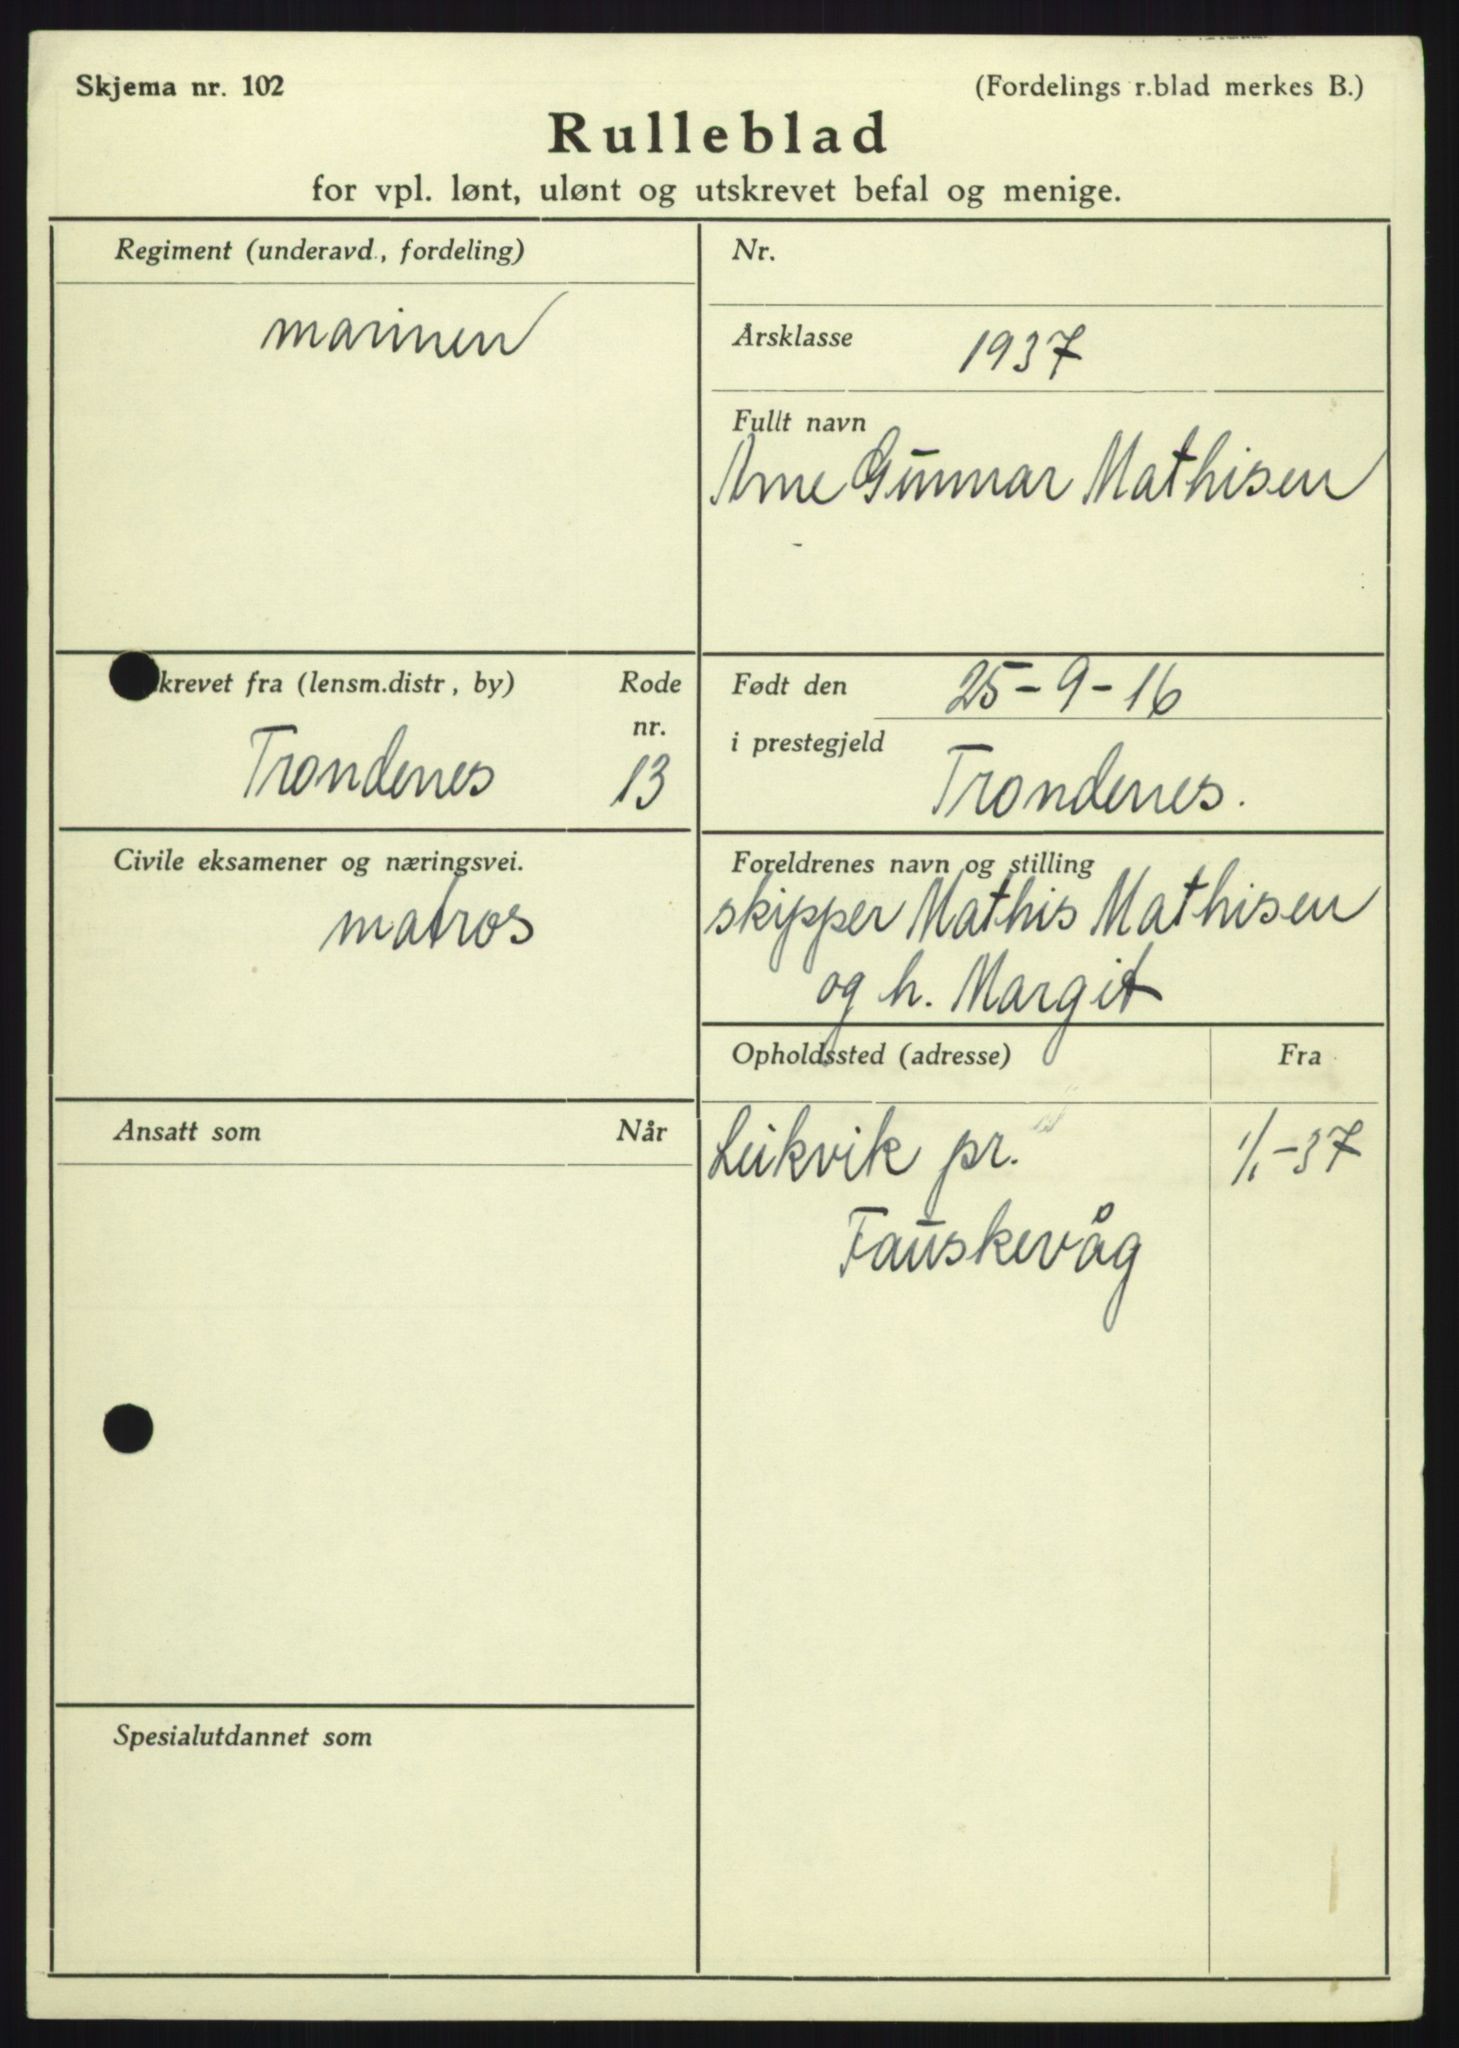 Skjema nr. 102
(Fordelings r.blad merkes B.)
Rulleblad
for vpl. lønt, ulønt og utskrevet befal og menige.
Regiment (underavd., fordeling)
marinen
Nr.
Årsklasse 1937
Fullt navn
Arne Gunnar Mathisen
krevet fra (lensm.distr, by)
Rode
nr.
Trondenes 13
Født den 25-9-16
i prestegjeld
Trondenes.
Civile eksamener og næringsvei.
matros
Foreldrenes navn og stilling
skipper Mathis Mathisen
og h. Margit
Opholdssted (adresse) Fra
Leikvik pr. 1/1-37
Fauskevåg
Ansatt som Når
Spesialutdannet som